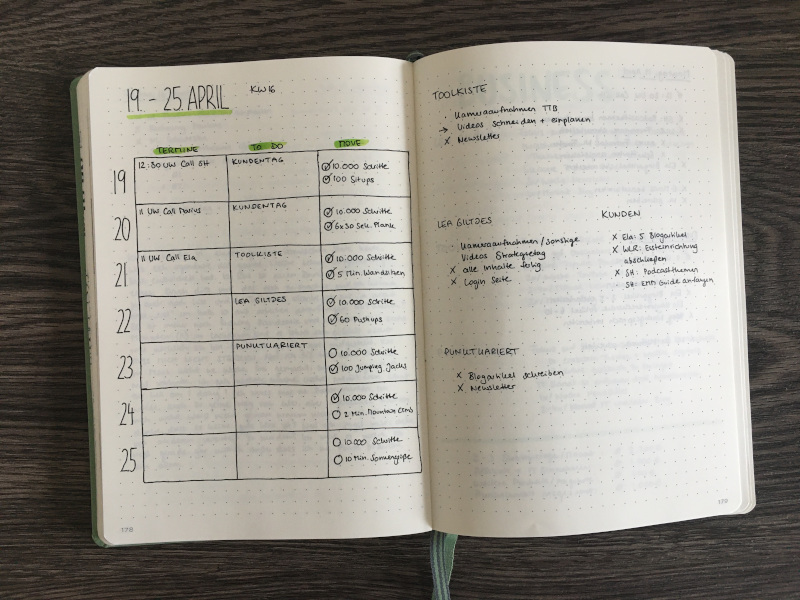 19. - 25. APRIL
KW16
TERMINE
TO DO
MOVE
19
12:30 UW Call SH
KUNDENTAG
10.000 Schritte
100 Situps
20
11 UW Call Darius
KUNDENTAG
10.000 Schritte
6x30 Sek. Plank
21
11 UW Call Ela
TOOLKISTE
10.000 Schritte
5 Min. Wandsitzen
22
LEA GILTJES
10.000 Schritte
60 Pushups
23
PUNKTKARIERT
10.000 Schritte
100 Jumping Jacks
24
10.000 Schritte
2 Min. Mountain Climb
25
10.000 Schritte
10 Min. Sonnengrüße
128
TOOLKISTE
· Kameraaufnahmen TTB
→ Videos schneiden + einplanen
x Newsletter
LEA GILTJES
Kameraaufnahmen/sonstige
Videos Strategietag
x alle Inhalte fertig
x Login Seite
KUNDEN
x Ela: 5 Blogartikel
x WLR: Ersteinrichtung
abschließen
x SH: Podcastthemen
· SH: Guide anfangen
PUNKTKARIERT
x Blogartikel schreiben
x Newsletter
129